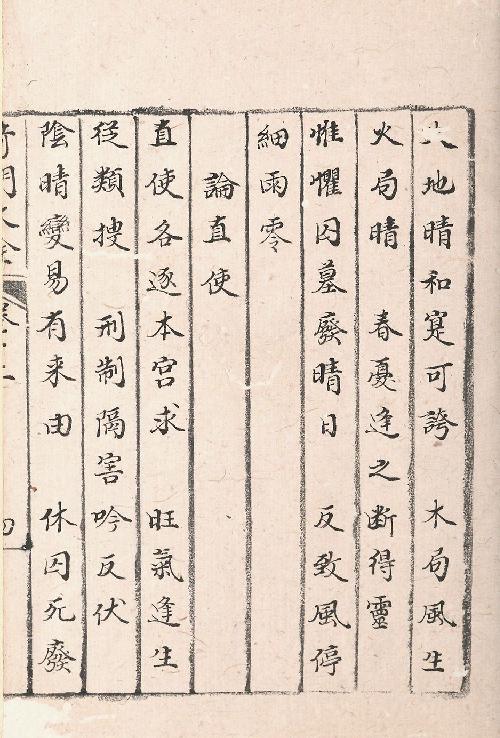 大地晴和寔可誇　木局風生
火局晴　春憂逢之断得靈
惟懼囚墓廢晴日　反致風停
細雨零
論直使
直使各逐本宫求　旺氣逢生
從類搜　刑制隔害吟反伏
陰晴變易有来由　休囚死廢